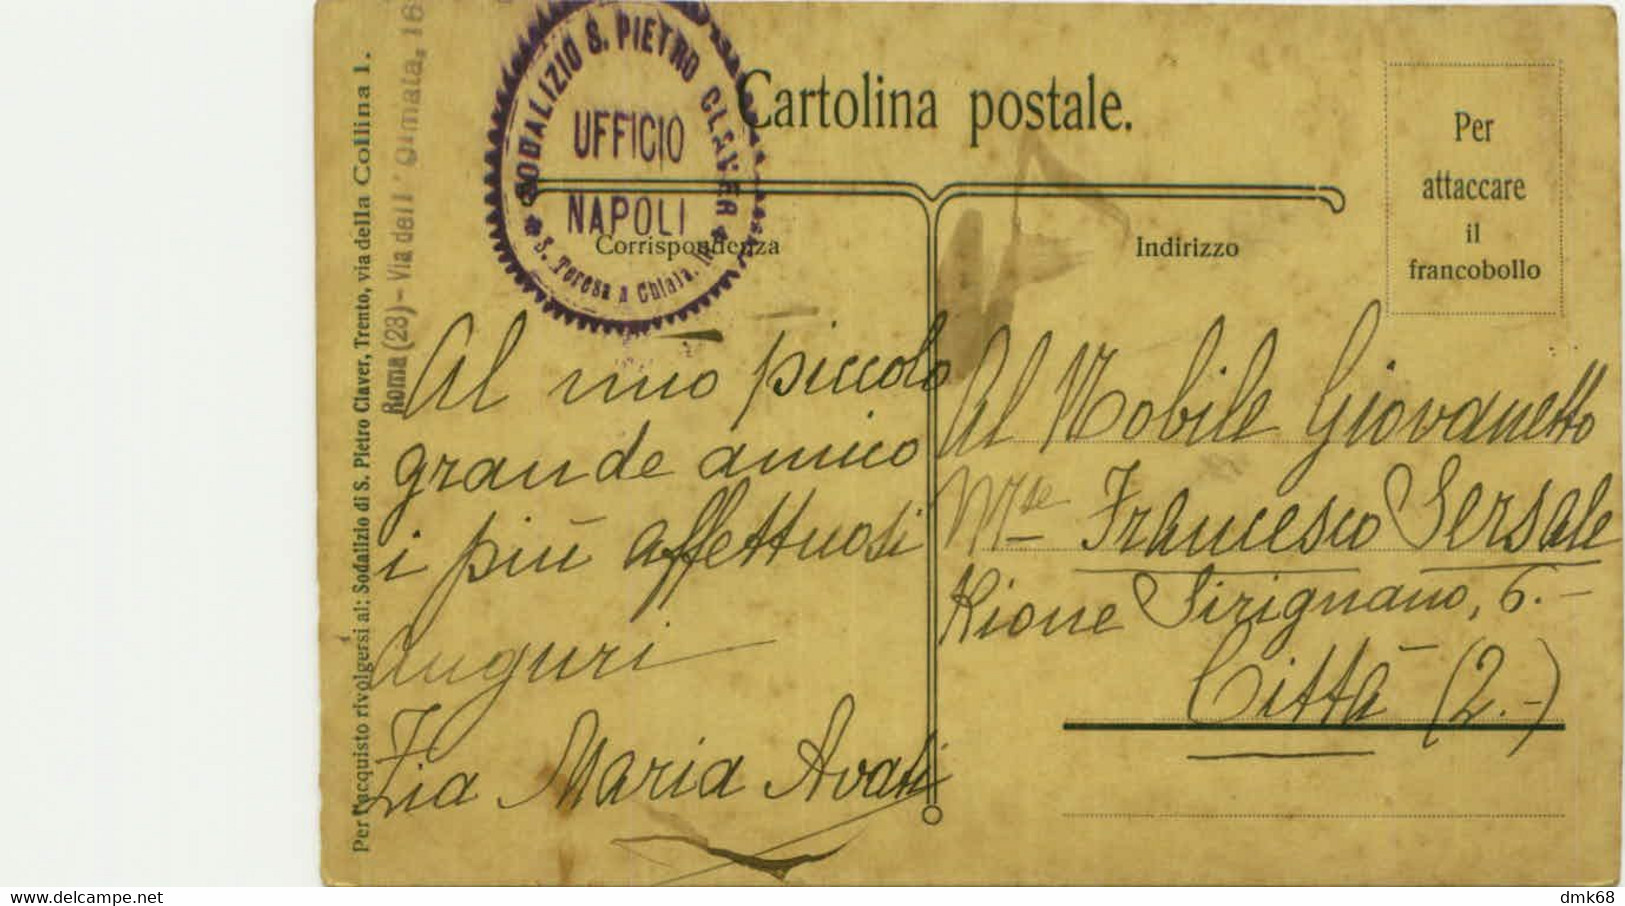 Per l'acquisto rivolgersi al: Sodalizio di S. Pietro Claver, Trento, via della Collina 1.
Roma (23) - Via dell'Olmata, 16
SODALIZIO S. PIETRO CLAVER
UFFICIO
NAPOLI
S. Teresa a Chiaia,
Cartolina postale.
Per
attaccare
il
francobollo
Corrispondenza
Indirizzo
Al mio piccolo
grande amico
i più affettuosi
auguri
Zia Maria Avati
Al Nobile Giovanetto
Mse Francesco Sersale
Rione Sirignano, 6.-
Città (2.-)
delcampe.net
dmk68